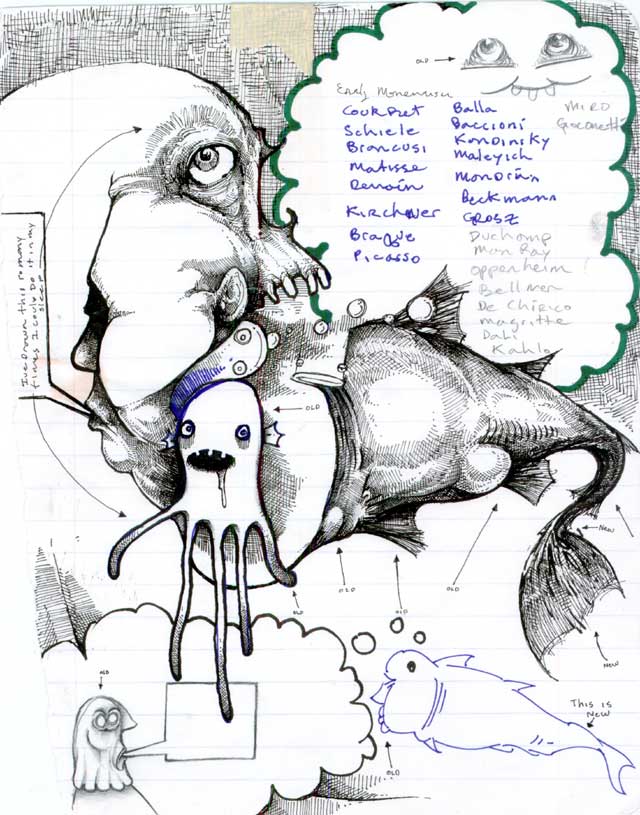 OLD
Early Momenmus
Courbet
Schiele
Brancusi
Matisse
Renoin
Kirchner
Braque
Picasso
Balla
Baccioni
Kandinsky
Maleyich
Mondrian
Beckmann
Grosz
Duchamp
Man Ray
Oppenheim !
Bellmer
De Chirico
Magritte
Dali
Kahlo
MIRO
Giacometti
I've Drawn this so many
times I could Do it in my
sleep
OLD
OLD
OLD
OLD
OLD
New
New
This is
New
OLD
OLD